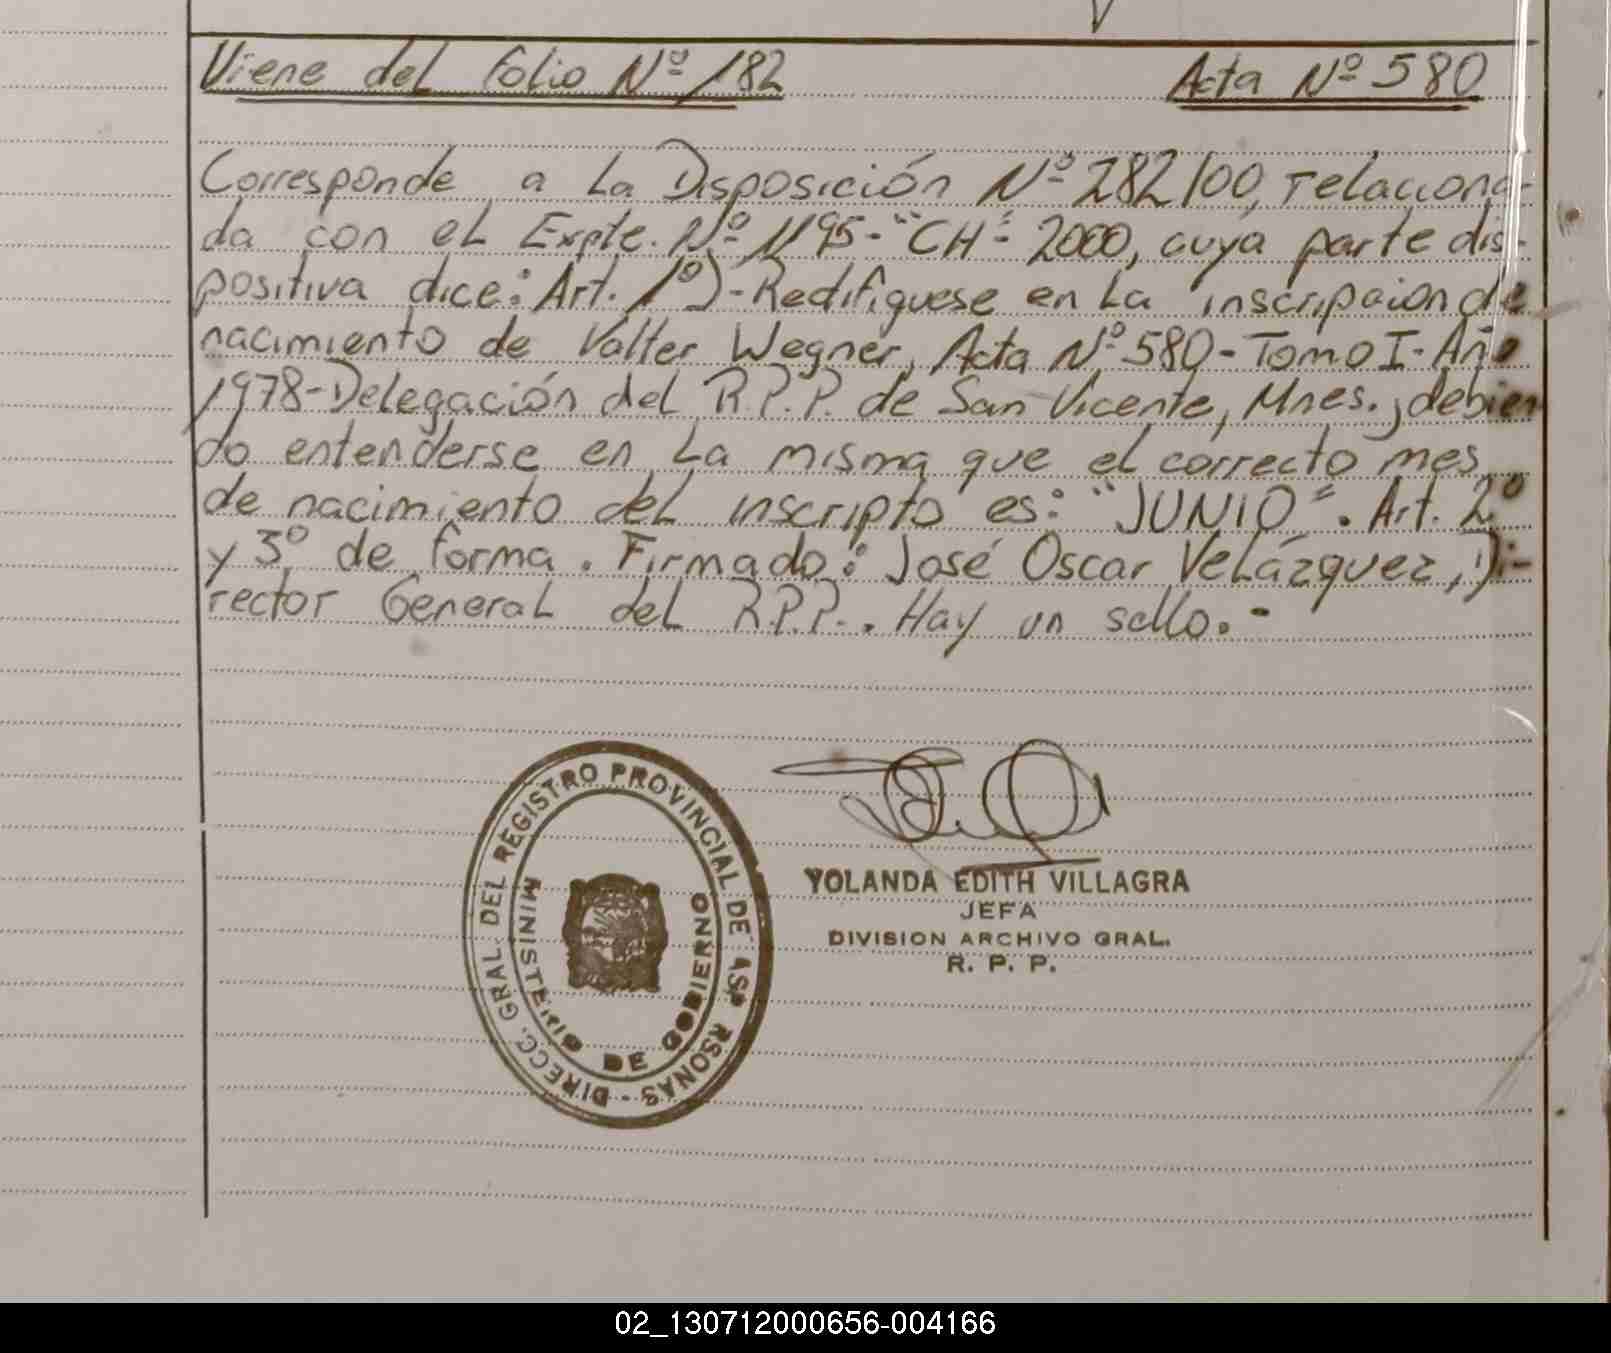 Viene del folio Nº 182
Acta Nº 580
Corresponde a La Disposición Nº 282/00, relaciona-
da con el Expte. Nº 1195-"CH"- 2000, cuya parte dis-
positiva dice: Art. 1º)-Redifiquese en La inscripcion de
nacimiento de Valter Wegner, Acta Nº 580-Tomo I-Año
1978-Delegación del R.P.P. de San Vicente, Mnes., debien
do entenderse en La misma que el correcto mes
de nacimiento del inscripto es: "JUNIO". Art. 2º
y 3º de forma. Firmado: José Oscar Velázquez, Di-
rector General del R.P.P.. Hay un sello.-
DIRECC. GRAL. DEL REGISTRO PROVINCIAL DE LAS PERSONAS -
MINISTERIO DE GOBIERNO
YOLANDA EDITH VILLAGRA
JEFA
DIVISION ARCHIVO GRAL.
R. P. P.
02_130712000656-004166